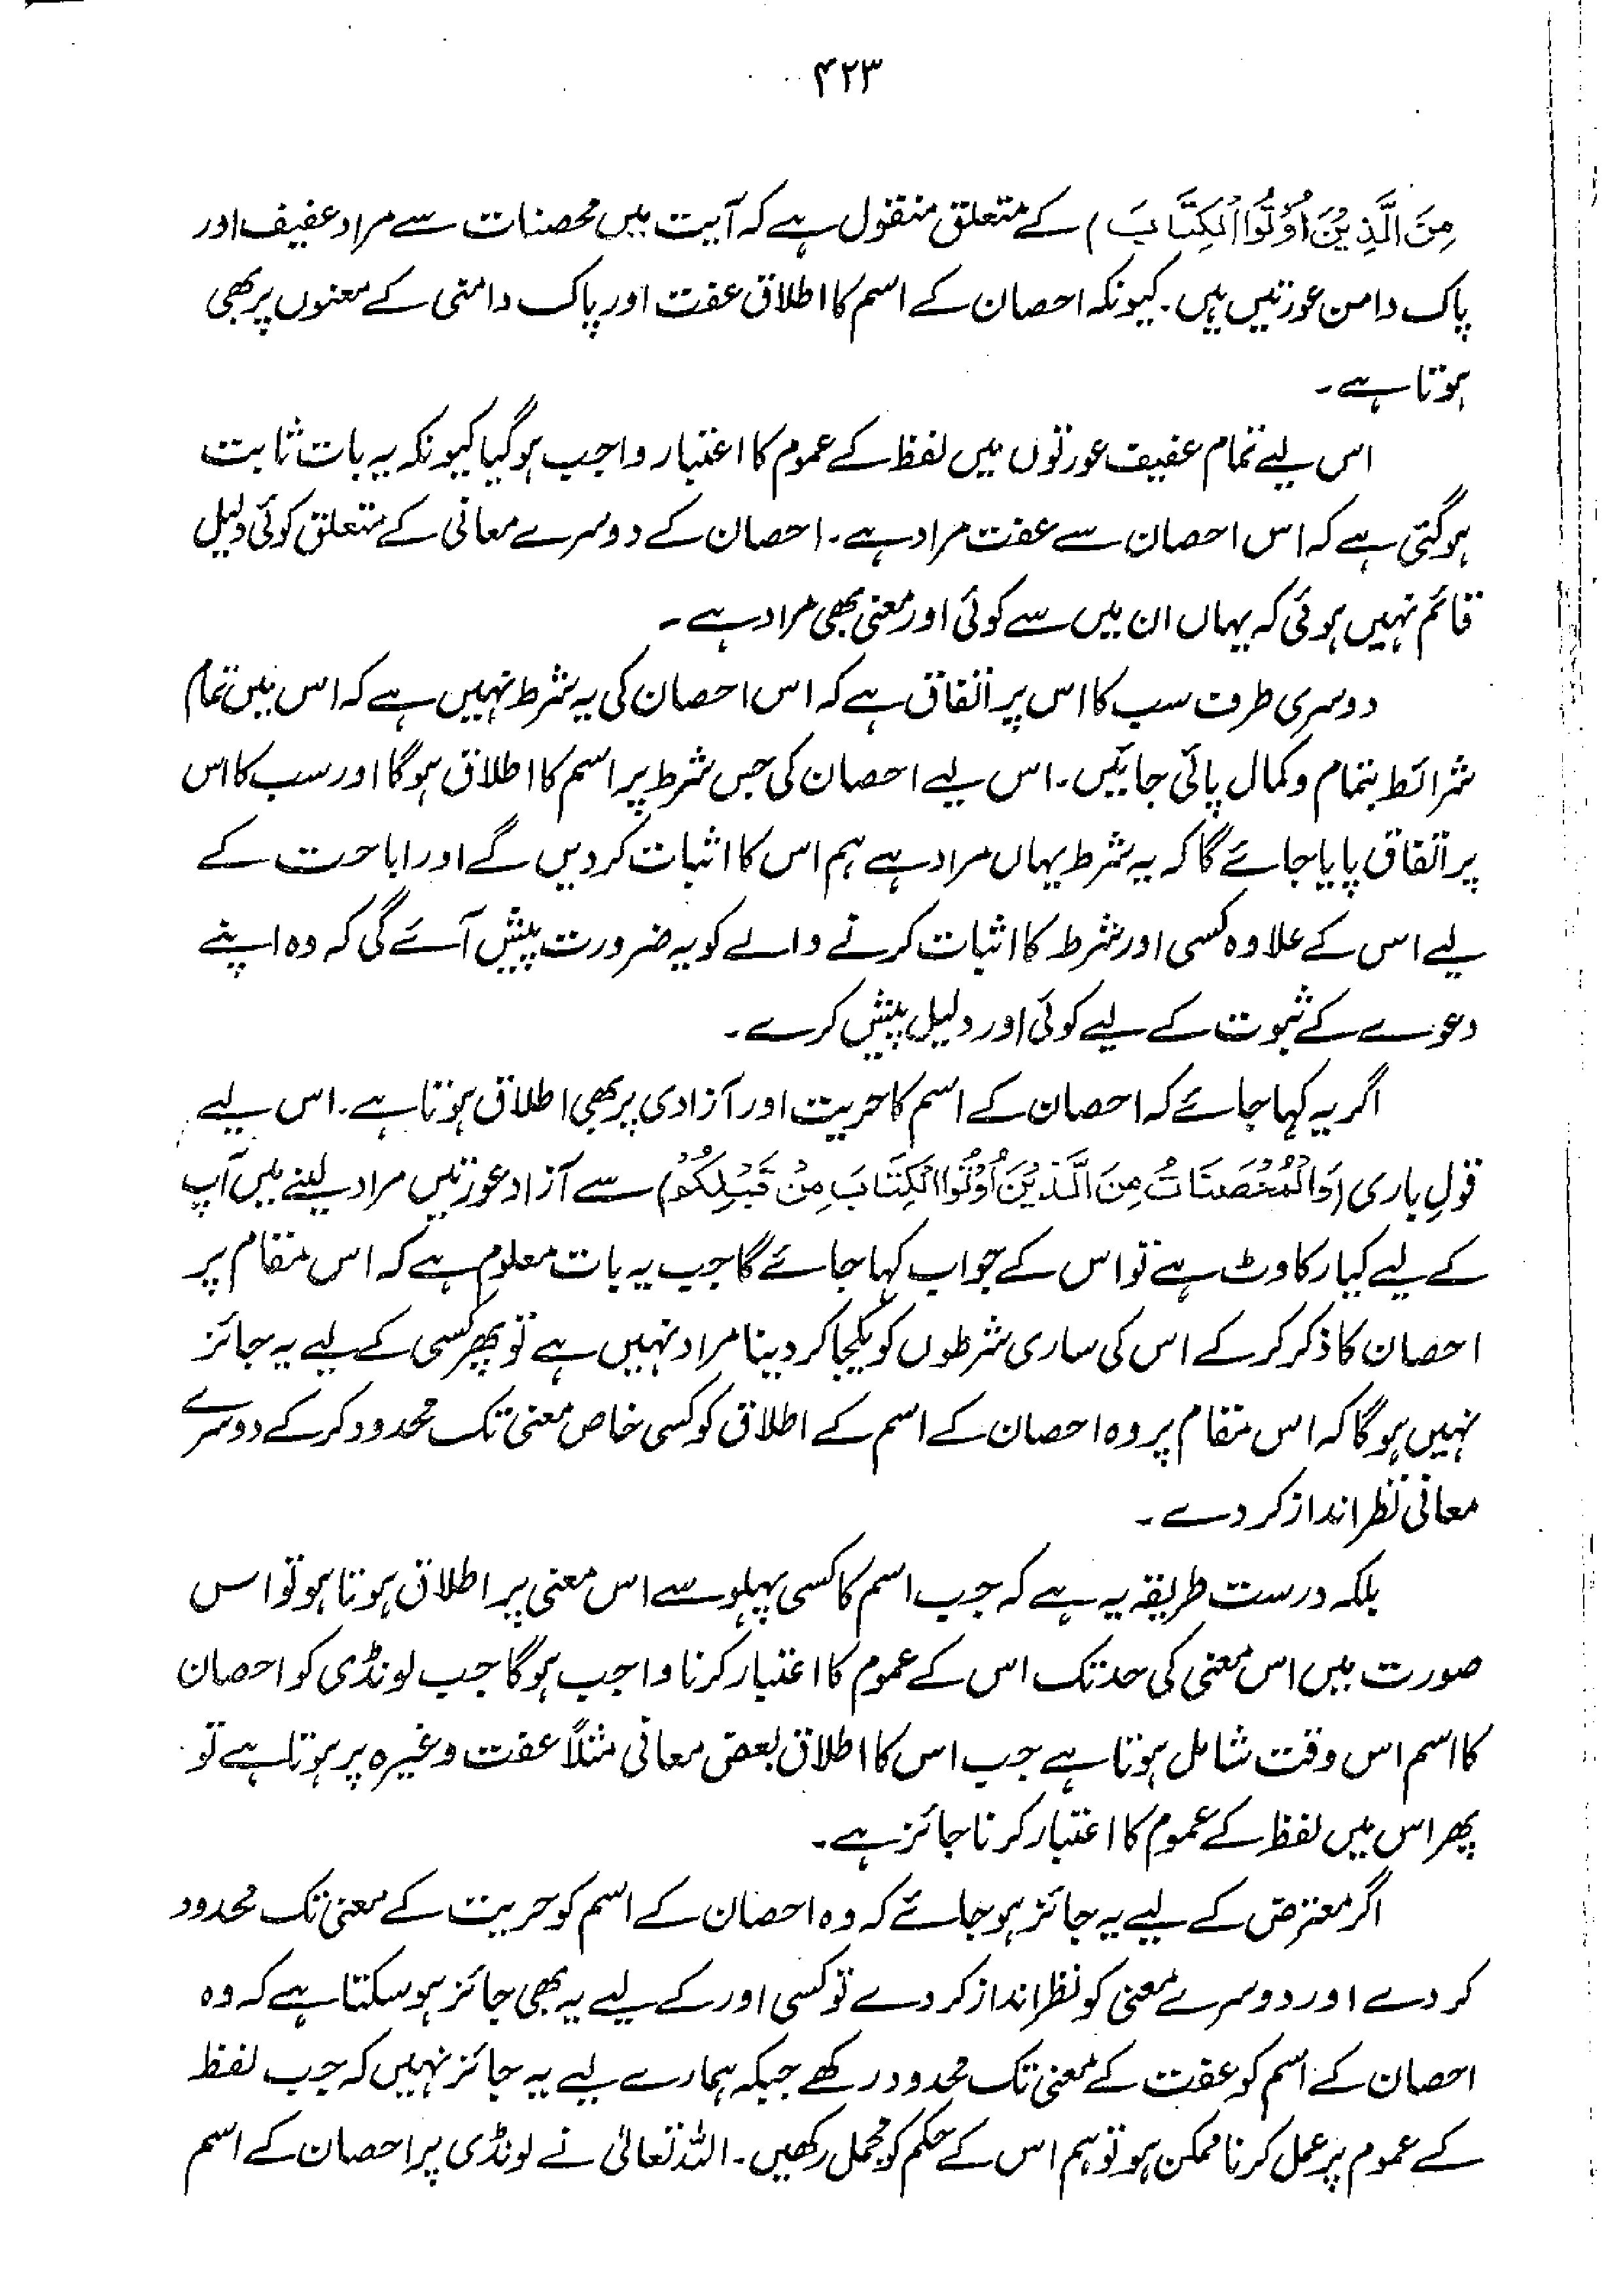 ۴۲۳
مِنَ الَّذِیْنَ اُوْتُوا الْکِتَابَ) کے متعلق منقول ہے کہ آیت میں محصنات سے مراد عفیف اور
پاک دامن عورتیں ہیں۔ کیونکہ احصان کے اسم کا اطلاق عفت اور پاک دامنی کے معنوں پر بھی
ہوتا ہے۔
اس لیے تمام عفیف عورتوں میں لفظ کے عموم کا اعتبار واجب ہو گیا کیونکہ یہ بات ثابت
ہو گئی ہے کہ اس احصان سے عفت مراد ہے۔ احصان کے دوسرے معانی کے متعلق کوئی دلیل
قائم نہیں ہوئی کہ یہاں ان میں سے کوئی اور معنی بھی مراد ہے۔
دوسری طرف سب کا اس پر اتفاق ہے کہ اس احصان کی یہ شرط نہیں ہے کہ اس میں تمام
شرائط بتمام و کمال پائی جائیں۔ اس لیے احصان کی جس شرط پر اسم کا اطلاق ہو گا اور سب کا اس
پر اتفاق پایا جائے گا کہ یہ شرط یہاں مراد ہے ہم اس کا اثبات کر دیں گے اور اباحت کے
لیے اس کے علاوہ کسی اور شرط کا اثبات کرنے والے کو یہ ضرورت پیش آئے گی کہ وہ اپنے
دعوے کے ثبوت کے لیے کوئی اور دلیل پیش کرے۔
اگر یہ کہا جائے کہ احصان کے اسم کا حریت اور آزادی پر بھی اطلاق ہوتا ہے۔ اس لیے
قولِ باری (وَالْمُحْصَنَاتُ مِنَ الَّذِیْنَ اُوْتُوا الْکِتَابَ مِنْ قَبْلِکُمْ) سے آزاد عورتیں مراد لینے میں آپ
کے لیے کیا رکاوٹ ہے تو اس کے جواب کہا جائے گا جب یہ بات معلوم ہے کہ اس مقام پر
احصان کا ذکر کر کے اس کی ساری شرطوں کو یکجا کر دینا مراد نہیں ہے تو پھر کسی کے لیے یہ جائز
نہیں ہو گا کہ اس مقام پر وہ احصان کے اسم کے اطلاق کو کسی خاص معنی تک محدود کر کے دوسرے
معانی نظر انداز کر دے۔
بلکہ درست طریقہ یہ ہے کہ جب اسم کا کسی پہلو سے اس معنی پر اطلاق ہوتا ہو تو اس
صورت میں اس معنی کی حد تک اس کے عموم کا اعتبار کرنا واجب ہو گا جب لونڈی کو احصان
کا اسم اس وقت شامل ہوتا ہے جب اس کا اطلاق بعض معانی مثلاً عفت وغیرہ پر ہوتا ہے تو
پھر اس میں لفظ کے عموم کا اعتبار کرنا جائز ہے۔
اگر معترض کے لیے یہ جائز ہو جائے کہ وہ احصان کے اسم کو حریت کے معنی تک محدود
کر دے اور دوسرے معنی کو نظر انداز کر دے تو کسی اور کے لیے یہ بھی جائز ہو سکتا ہے کہ وہ
احصان کے اسم کو عفت کے معنی تک محدود رکھے جبکہ ہمارے لیے یہ جائز نہیں کہ جب لفظ
کے عموم پر عمل کرنا ممکن ہو تو ہم اس کے حکم کو مجمل رکھیں۔ اللہ تعالیٰ نے لونڈی پر احصان کے اسم